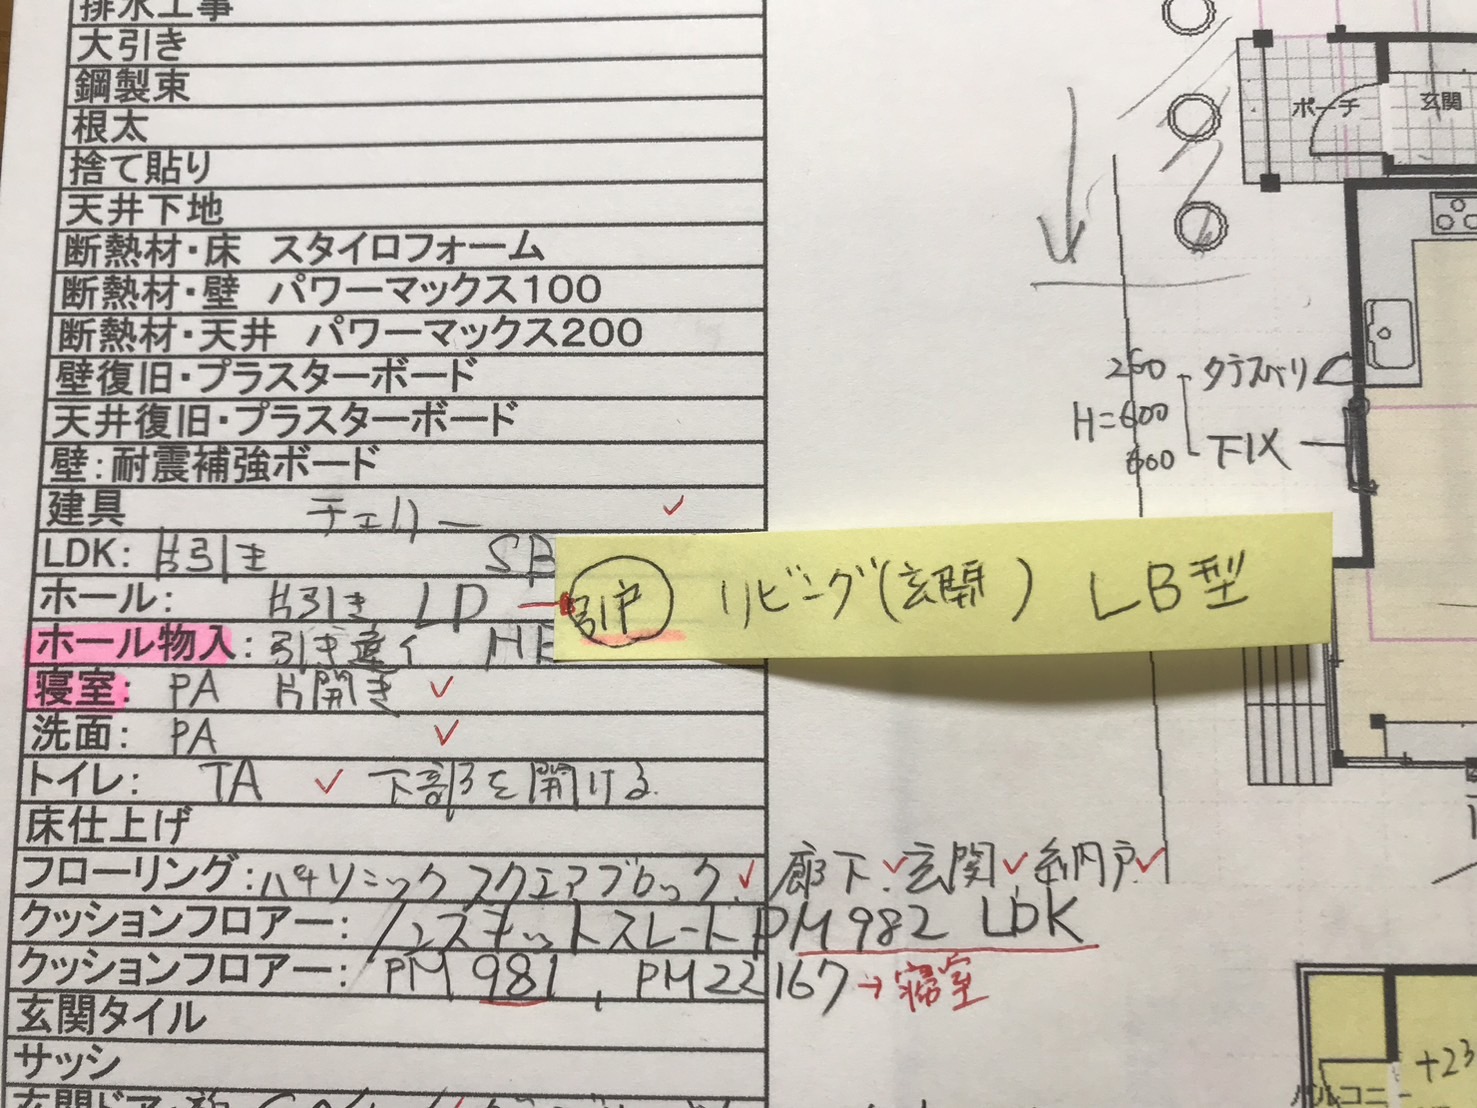 排水工事
大引き
鋼製束
根太
捨て貼り
天井下地
断熱材・床 スタイロフォーム
断熱材・壁 パワーマックス100
断熱材・天井 パワーマックス200
壁復旧・プラスターボード
天井復旧・プラスターボード
壁:耐震補強ボード
建具 チェリー ✓
LDK: 片引き
ホール: 片引き LD
引戸 リビング(玄関) LB型
ホール物入: 引き違い
寝室: PA 片開き ✓
洗面: PA ✓
トイレ: TA ✓ 下部を開ける
床仕上げ
フローリング: パナソニック スクエアブロック ✓ 廊下 ✓ 玄関 ✓ 納戸 ✓
クッションフロアー: スレート PM982 LDK
クッションフロアー: PM981, PM22167→寝室
玄関タイル
サッシ
ポーチ
玄関
260 タテスベリ
H=600
600 下IX
バルコニー
+23